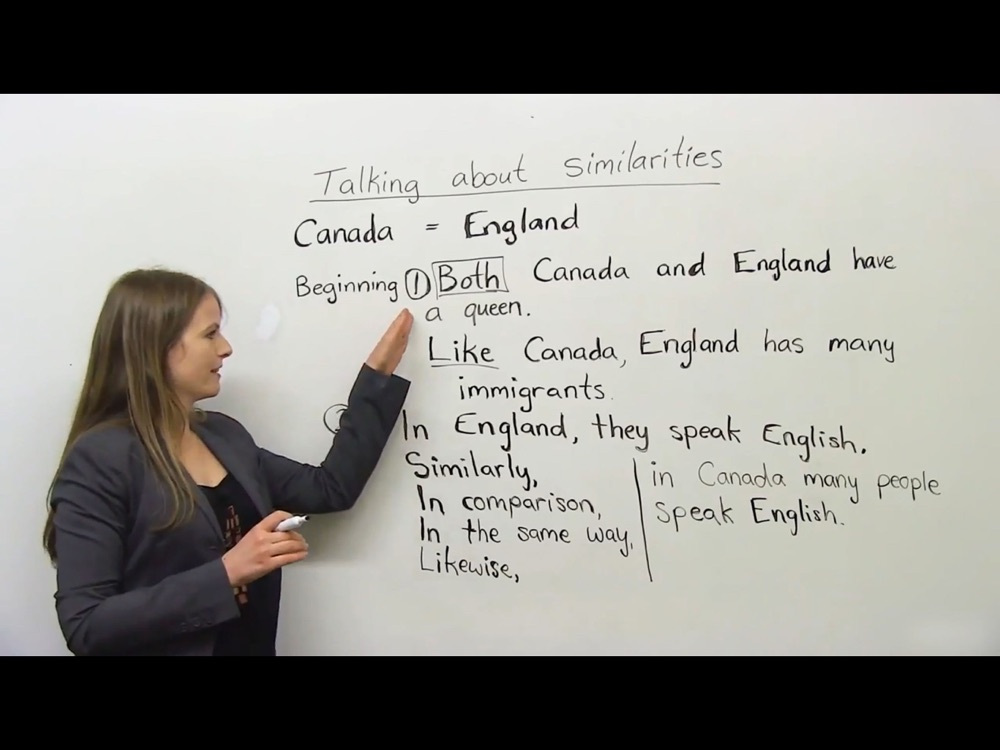 Talking about similarities
Canada = England
Beginning ① Both Canada and England have
a queen.
Like Canada, England has many
immigrants.
② In England, they speak English.
Similarly,
In comparison,
In the same way,
Likewise,
in Canada many people
speak English.